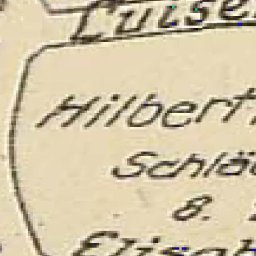 Luise
Hilbert
Schlä
8.
Elisab